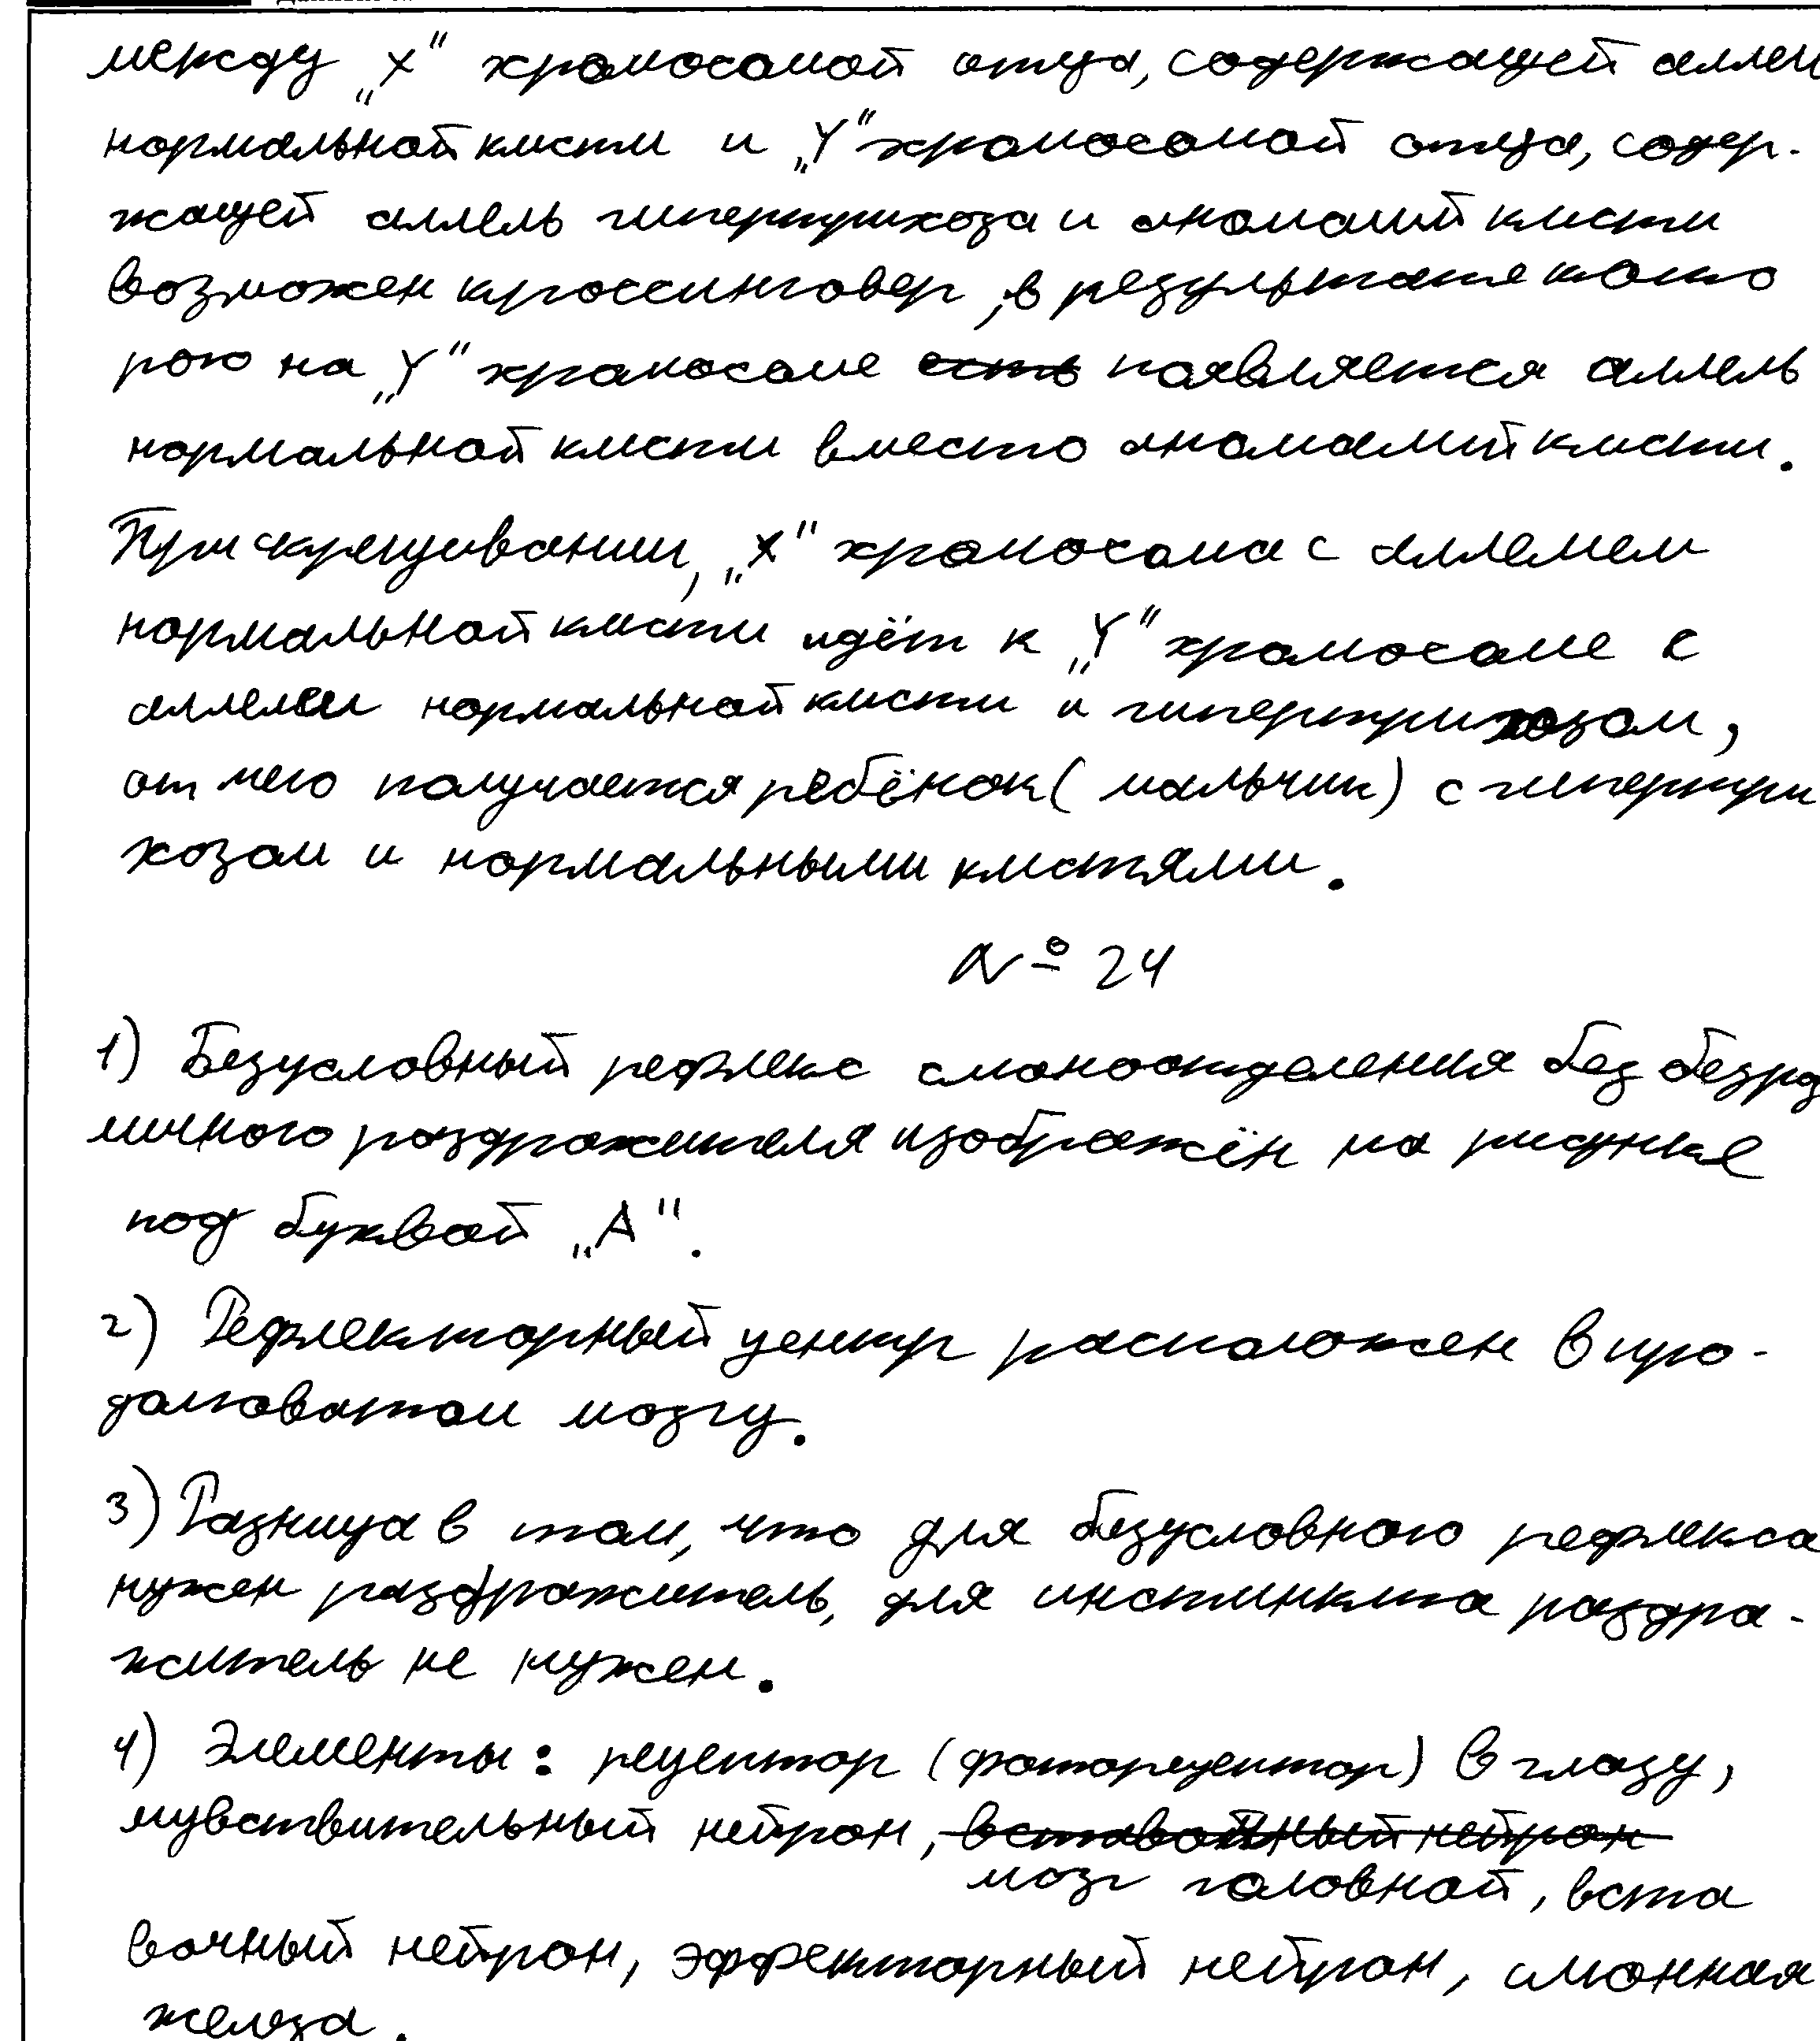 между „X" хромосомой отца, содержащей аллель
нормальной кисти и „Y" хромосомой отца, содер-
жащей аллель гипертрихоза и аномалий кисти
возможен кроссинговер, в результате кото
рого на „Y" хромосоме есть появляется аллель
нормальной кисти вместо аномалий кисти.
При скрещивании, „X" хромосома с аллелем
нормальной кисти идёт к „Y" хромосоме с
аллелем нормальной кисти и гипертрихозом,
от чего получается ребёнок (мальчик) с гипертри
хозом и нормальными кистями.
№ 24
1) Безусловный рефлекс слюноотделения без безраз
личного раздражителя изображён на рисунке
под буквой „А".
2) Рефлекторный центр расположен в про-
долговатом мозгу.
3) Разница в том, что для безусловного рефлекса
нужен раздражитель, для инстинкта раздра-
житель не нужен.
4) Элементы: рецептор (фоторецептор) в глазу,
чувствительный нейрон, вставочный нейрон
мозг головной, вста
вочный нейрон, эффекторный нейрон, слюнная
железа.